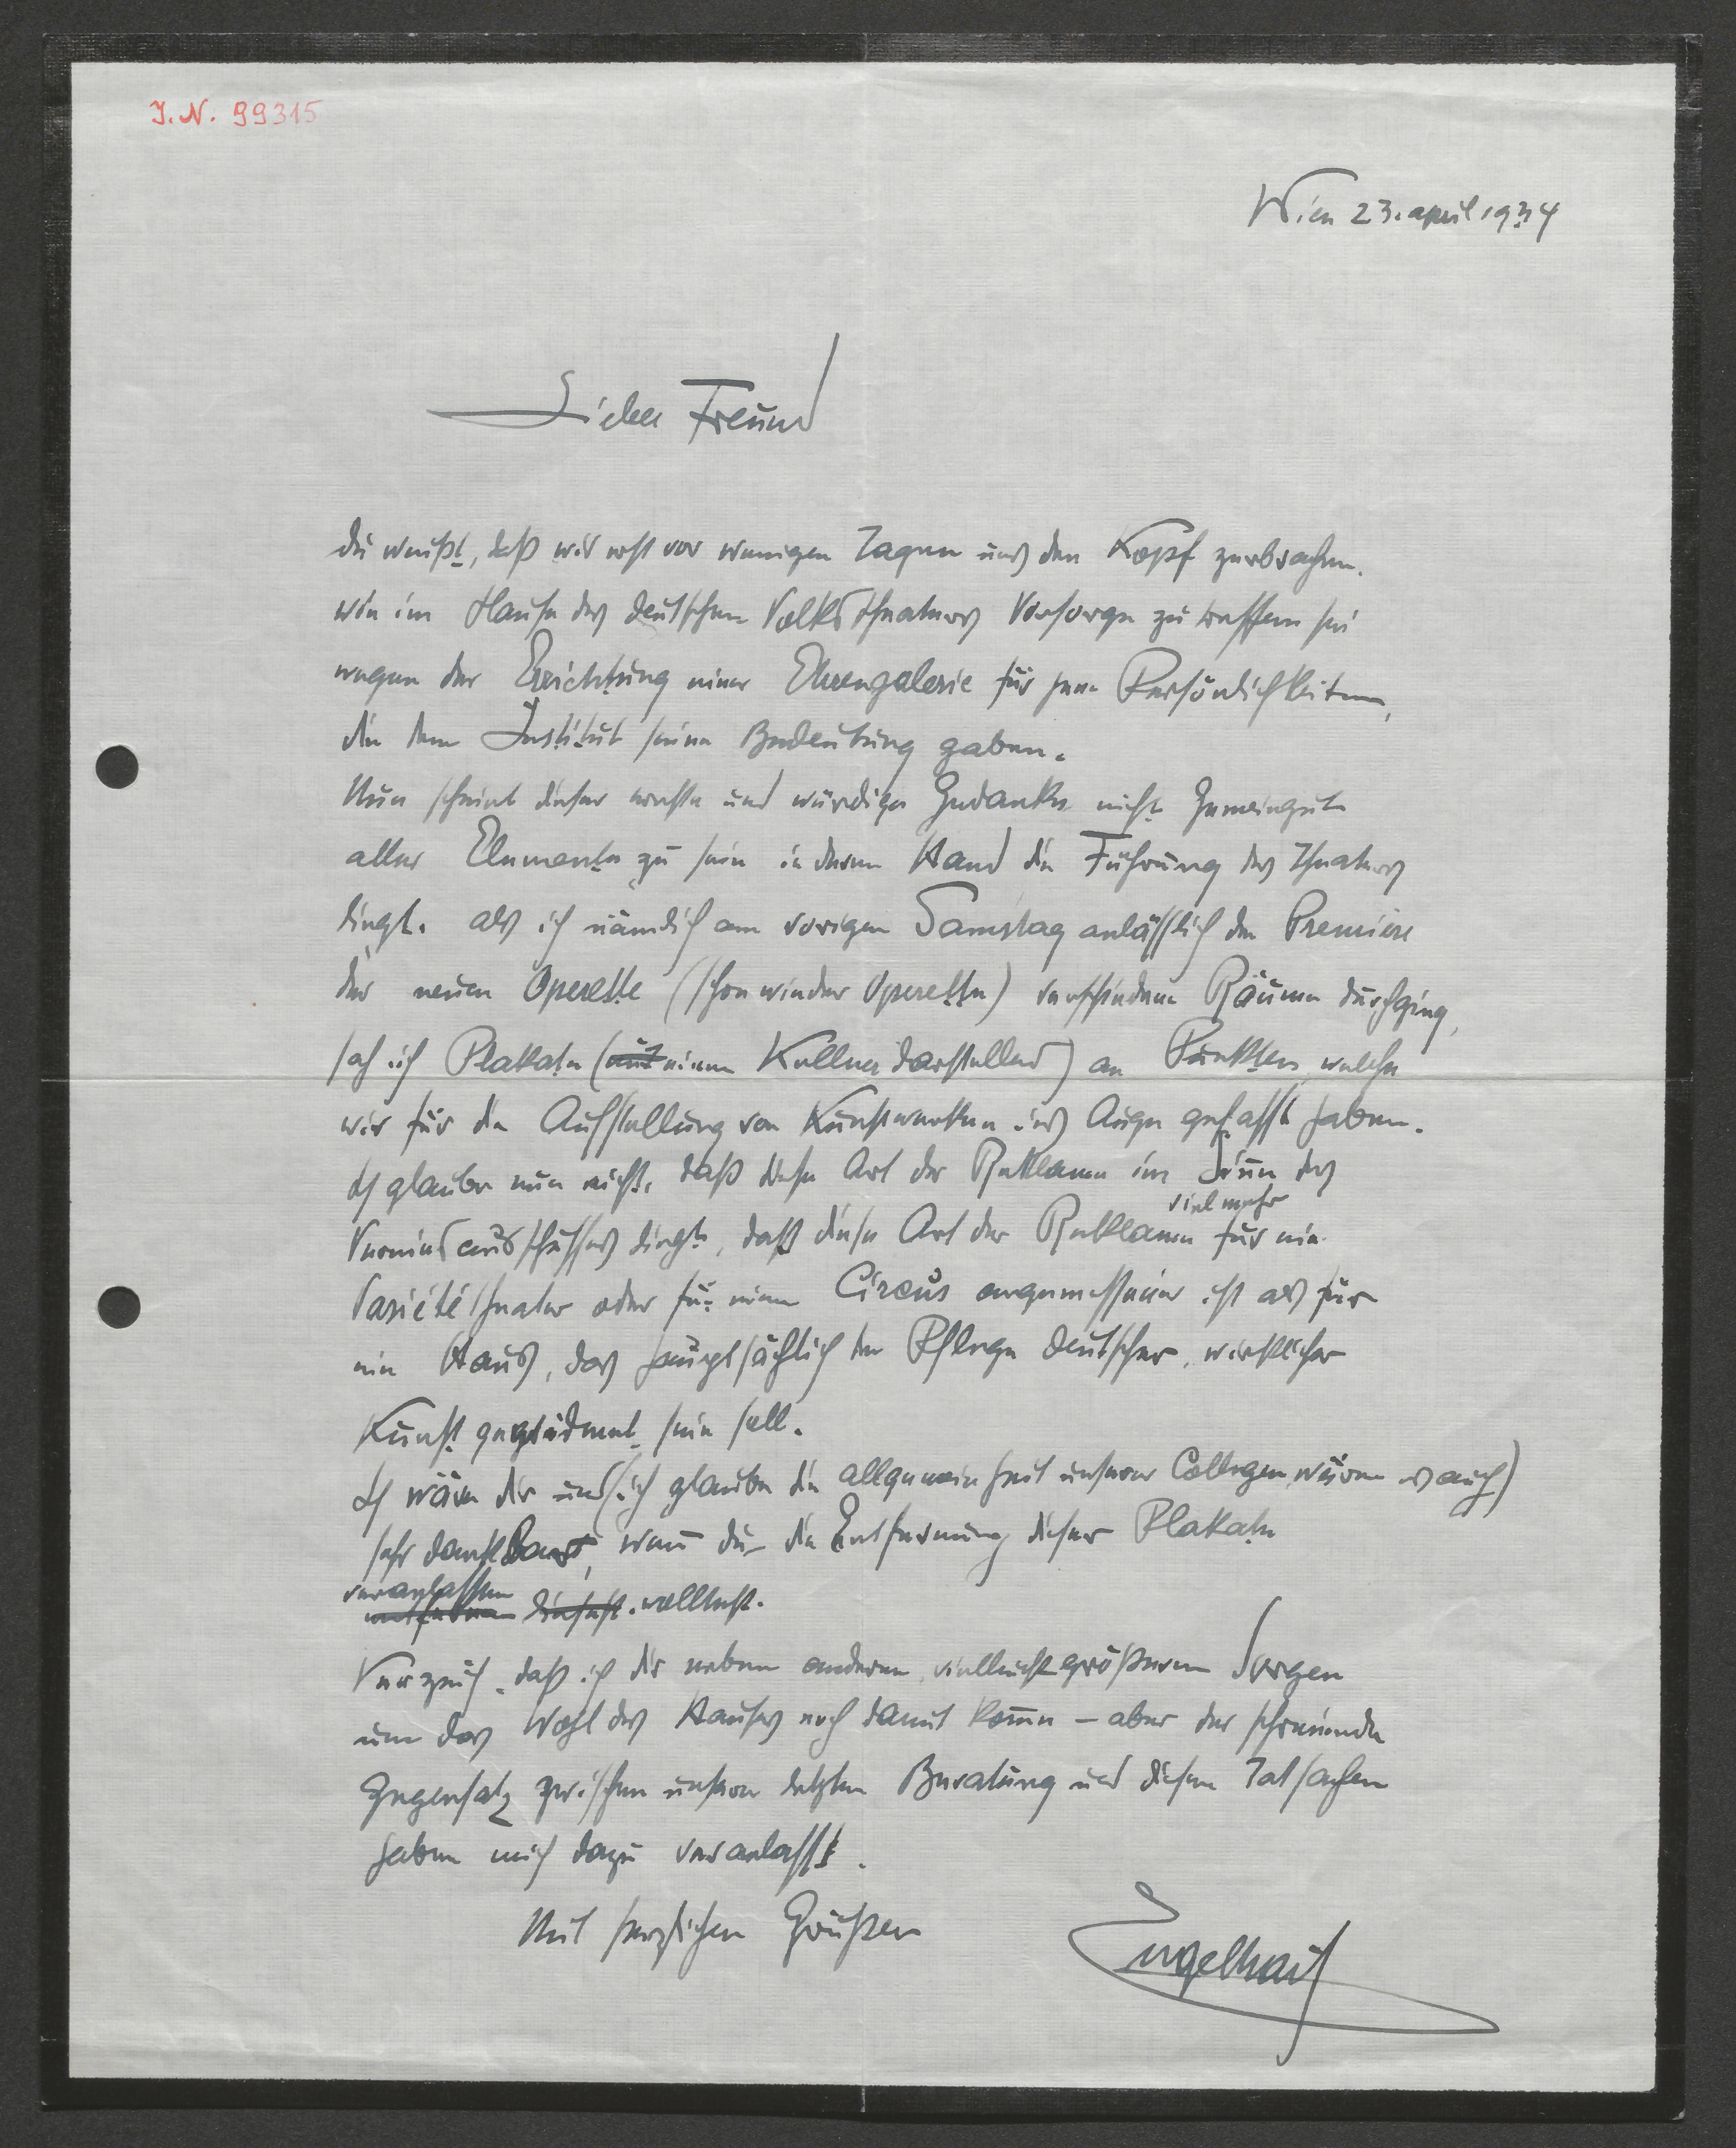 I.N. 99315
Wien 23. april 1934
Lieber Freund
du weißt, daß wir erst vor wenigen Tagen uns den Kopf zerbrachen.
wie im Hause des deutschen Volkstheaters Vorsorge zu treffen sei
wegen der Errichtung einer Ehrengalerie für jene Persönlichkeiten,
die dem Institut seine Bedeutung gaben.
Nun scheint dieser ernste und würdige Gedanke nicht Gemeingut
aller Elemente zu sein in deren Hand die Führung des Theaters
liegt. als ich nämlich am vorigen Samstag anläßlich der Premiere
der neuen Operette (schon wieder Operette) verschiedene Räume durchging,
sah ich Plakate (einen Kellner darstellend) an Punkten, welche
wir für die Aufstellung von Kunstwerken ins Auge gefasst haben.
Ich glaube nun nicht, daß diese Art der Reklame im Sinn des
Vereinsausschußes liegt, daß diese Art der Reklame vielmehr für ein
Variététheater oder für einen Circus angemessener ist als für
ein Haus, das hauptsächlich der Pflege deutscher, wirklicher
Kunst gewidmet sein soll.
Ich wäre dir und (ich glaube die allgemeinheit unserer Collegen wären es auch)
sehr dankbar, wenn du die Entfernung dieser Plakate
veranlassen wolltest.
Verzeih, daß ich dir neben anderen vielleicht größeren Sorgen
um das Wohl des Hauses noch damit kom̄e – aber der schreiende
Gegensatz zwischen unserer letzten Beratung und diesen Tatsachen
haben mich dazu veranlasst.
Mit herzlichen Grüßen
Engelhart